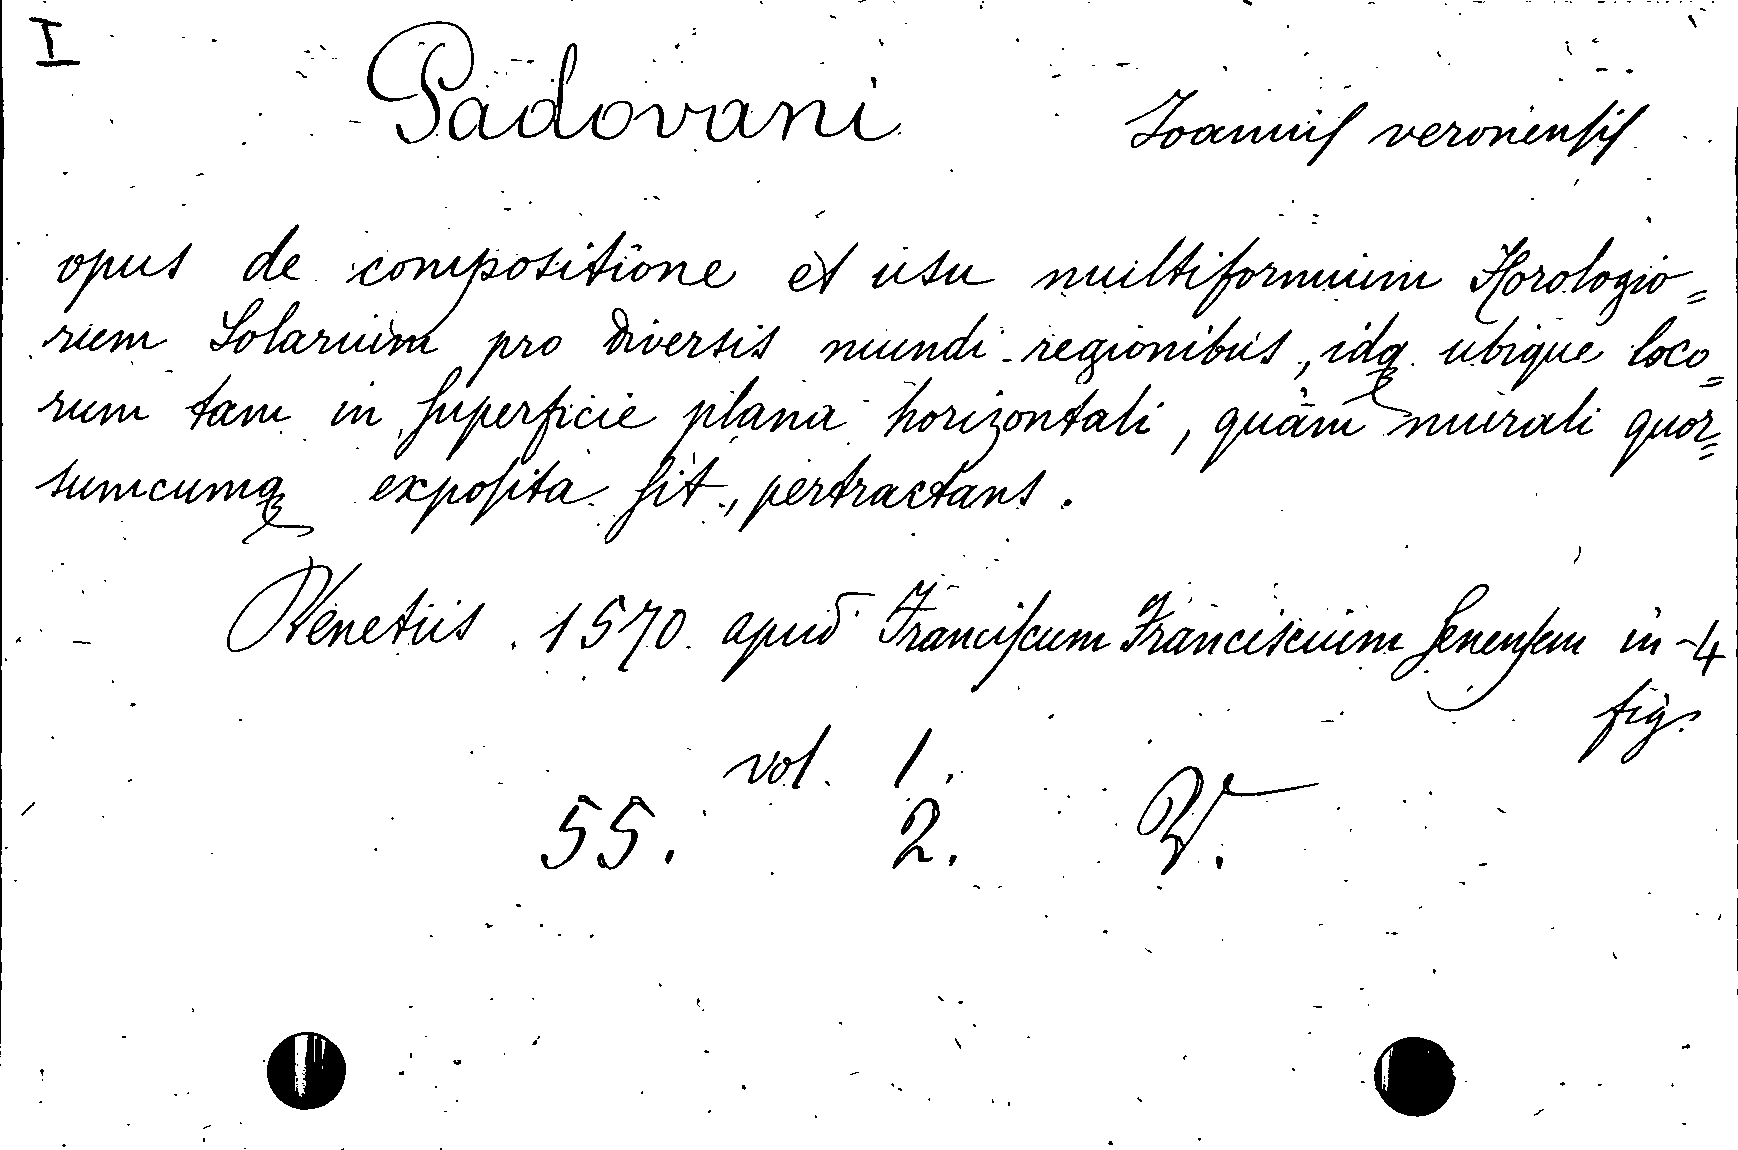 I
Padovani Ioannis veronensis
opus de compositione et usu multiformium Horologio=
rum Solarium pro diversis mundi regionibus, idq ubique loco=
rum tam in superficie plana horizontali, quàm murali quor=
sumcumq exposita sit, pertractans.
Venetiis. 1570. apud Franciscum Franciscium Senensem in-4
fig.
vol. 1.
55. 2. V.